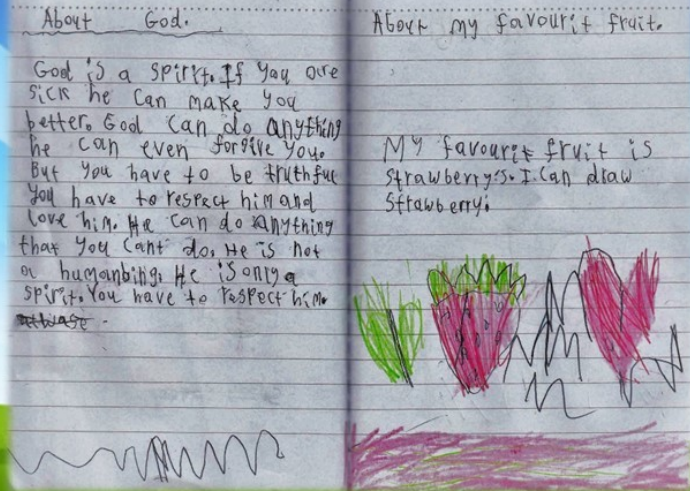 About God.
God is a spirit. If you are
sick he can make you
better. God can do anything
he can even forgive you.
But you have to be truthful
you have to respect him and
love him. He can do anything
that you cant do. He is not
a humanbing. He is only a
spirit. You have to respect him.
About my favourit fruit.
My favourit fruit is
strawberry's. I can draw
strawberry.